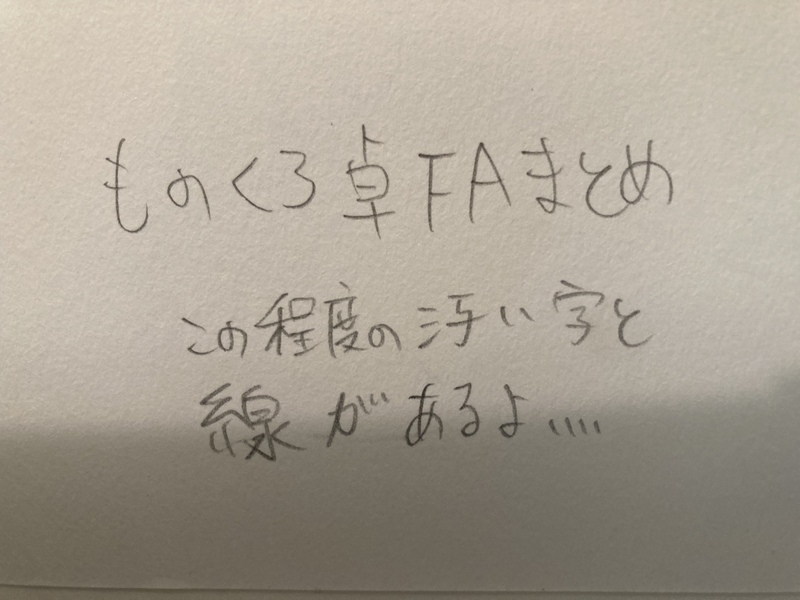 ものくろ卓FAまとめ
この程度の汚い字と
線があるよ....